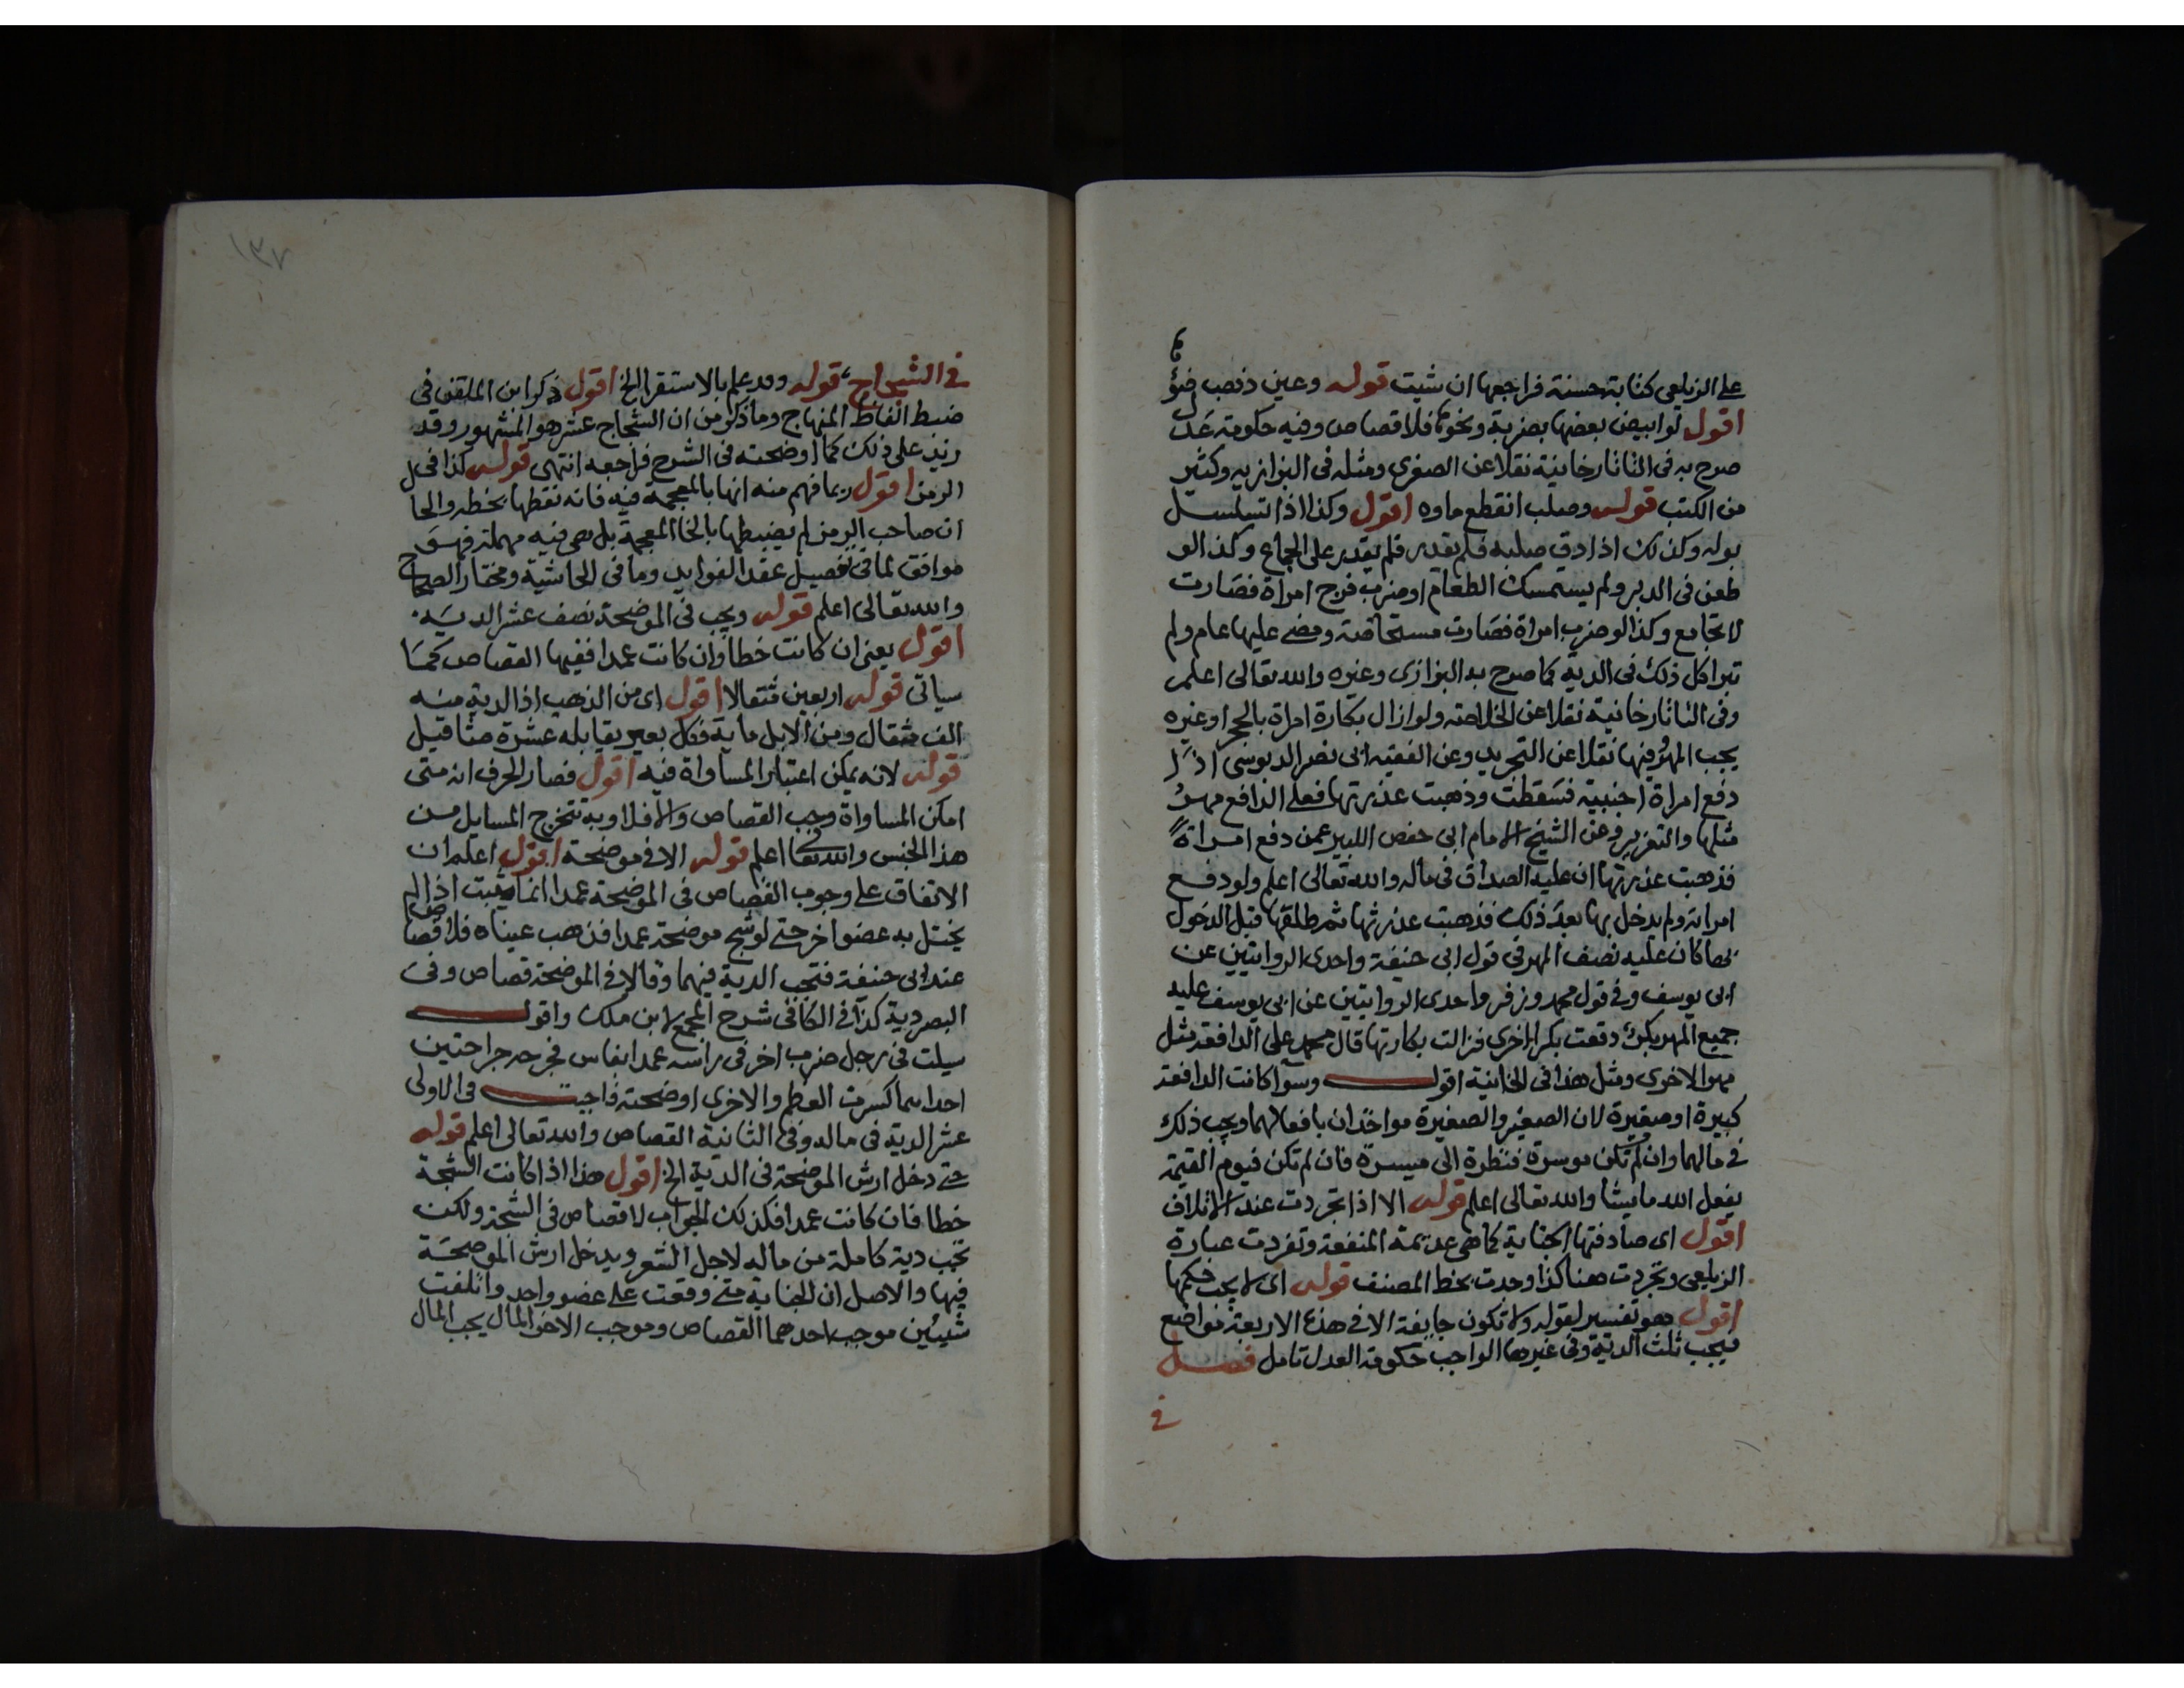 على الزيلعي كتابة حسنة فراجعها ان شيت قوله وعين ذهب ضوؤها
اقول لو ابيض بعضها بضربة ونحوه فلا قصاص وفيه حكومة عدل
صرح به في التاتارخانية نقلا عن الصغرى ومثله في البزازيه وكثير
من الكتب قوله وصلب انقطع ماوه اقول وكذا اذا تسلسل
بوله وكذلك اذا دق صلبه فلم يقدر على الجماع وكذا لو
طعن في الدبر ولم يستمسك الطعام او ضرب فرج امراة فصارت
لا تجامع وكذا لو ضرب امراة فصارت مستحاضة ومضى عليها عام ولم
تبرا كل ذلك في الدية كما صرح به البزازى وغيره والله تعالى اعلم
وفي التاتارخانية نقلا عن الخلاصة ولو ازال بكارة امراة بالحجر او غيره
يجب المهر فيها نقلا عن التجريد وعن الفقيه ابى نصر الدبوسى اذا
دفع امراة اجنبية فسقطت وذهبت عذرتها فعلى الدافع مهر
مثلها والتعزير وعن الشيخ الامام ابى حفص الكبير عمن دفع امراة
فذهبت عذرتها ان عليه الصداق في ماله والله تعالى اعلم ولو دفع
امراته ولم يدخل بها بعد ذلك فذهبت عذرتها ثم طلقها قبل الدخول
بها كان عليه نصف المهر في قول ابى حنيفة واحدى الروايتين عن
ابى يوسف وفي قول محمد وزفر واحدى الروايتين عن ابى يوسف عليه
جميع المهر بكر دفعت بكرا اخرى فزالت بكارتها قال محمد على الدافعة مثل
مهر الاخرى ومثل هذا في الخانية اقول وسوا كانت الدافعة
كبيرة او صغيرة لان الصغير والصغيرة مواخذان بافعالهما ويجب ذلك
في مالهما وان لم تكن موسرة فنظرة الى ميسرة فان لم تكن فيوم القيمة
يفعل الله ما يشا والله تعالى اعلم قوله الا اذا تجردت عند الاتلاف
اقول اى صادفتها الجناية كما هي عديمة المنفعة وتفردت عبارة
الزيلعي وتجردت هنا كذا وجدت بخط المصنف قوله اى لا يجب حكمها
اقول هو تفسير لقوله ولا تكون جايفة الا في هذه الاربعة مواضع
فيجب ثلث الدية وفي غيرها الواجب حكومة العدل تامل فصل
في
١٣٧
في الشجاج قوله وقد علم بالاستقرا الخ اقول ذكر ابن الملقن في
ضبط الفاظ المنهاج وما ذكر من ان الشجاج عشر هو المشهور وقد
زيد على ذلك كما اوضحته في الشرح فراجعه انتهى قوله كذا في
الرمز اقول ربما فهم منه انها بالمعجمة فيه فانه نقطها بخطه والحال
ان صاحب الرمز لم يضبطها بالخا المعجمة بل هي فيه مهملة فهو
موافق لما في تفصيل عقد الفوايد وما في الحاشية ومختار الصحاح
والله تعالى اعلم قوله ويجب في الموضحة نصف عشر الدية
اقول يعنى ان كانت خطا وان كانت عمدا ففيها القصاص كما
سياتى قوله اربعين مثقالا اقول اى من الذهب اذ الدية منه
الف مثقال ومن الابل ماية فكل بعير يقابله عشرة مثاقيل
قوله لانه يمكن اعتبار المساواة فيه اقول فصار الحرف انه متى
امكن المساواة وجب القصاص والا فلا وبه تتخرج المسايل من
هذا الجنس والله تعا اعلم قوله الا في موضحة اقول اعلم ان
الاتفاق على وجوب القصاص في الموضحة عمدا انما يثبت اذا لم
يختل به عضو اخر حتى لو شج موضحة عمدا فذهب عيناه فلا قصاص
عند ابى حنيفة فتجب الدية فيهما وقالا في الموضحة قصاص وفى
البصر دية كذا في الكافى شرح المجمع لابن ملك واقول
سيلت في رجل ضرب اخر فى راسه عمدا بفاس فجرحه جراحتين
احداهما كسرت العظم والاخرى اوضحته فاجبت في الاولى
عشر الدية في ماله وفي الثانية القصاص والله تعالى اعلم قوله
حتى دخل ارش الموضحة في الدية الخ اقول هذا اذا كانت الشجة
خطا فان كانت عمدا فكذلك الجواب لا قصاص في الشجة ولكن
تجب دية كاملة من ماله لاجل الشعر ويدخل ارش الموضحة
فيها والاصل ان الجناية متى وقعت على عضو واحد واتلفت
شيئين موجب احدهما القصاص وموجب الاخر المال يجب المال